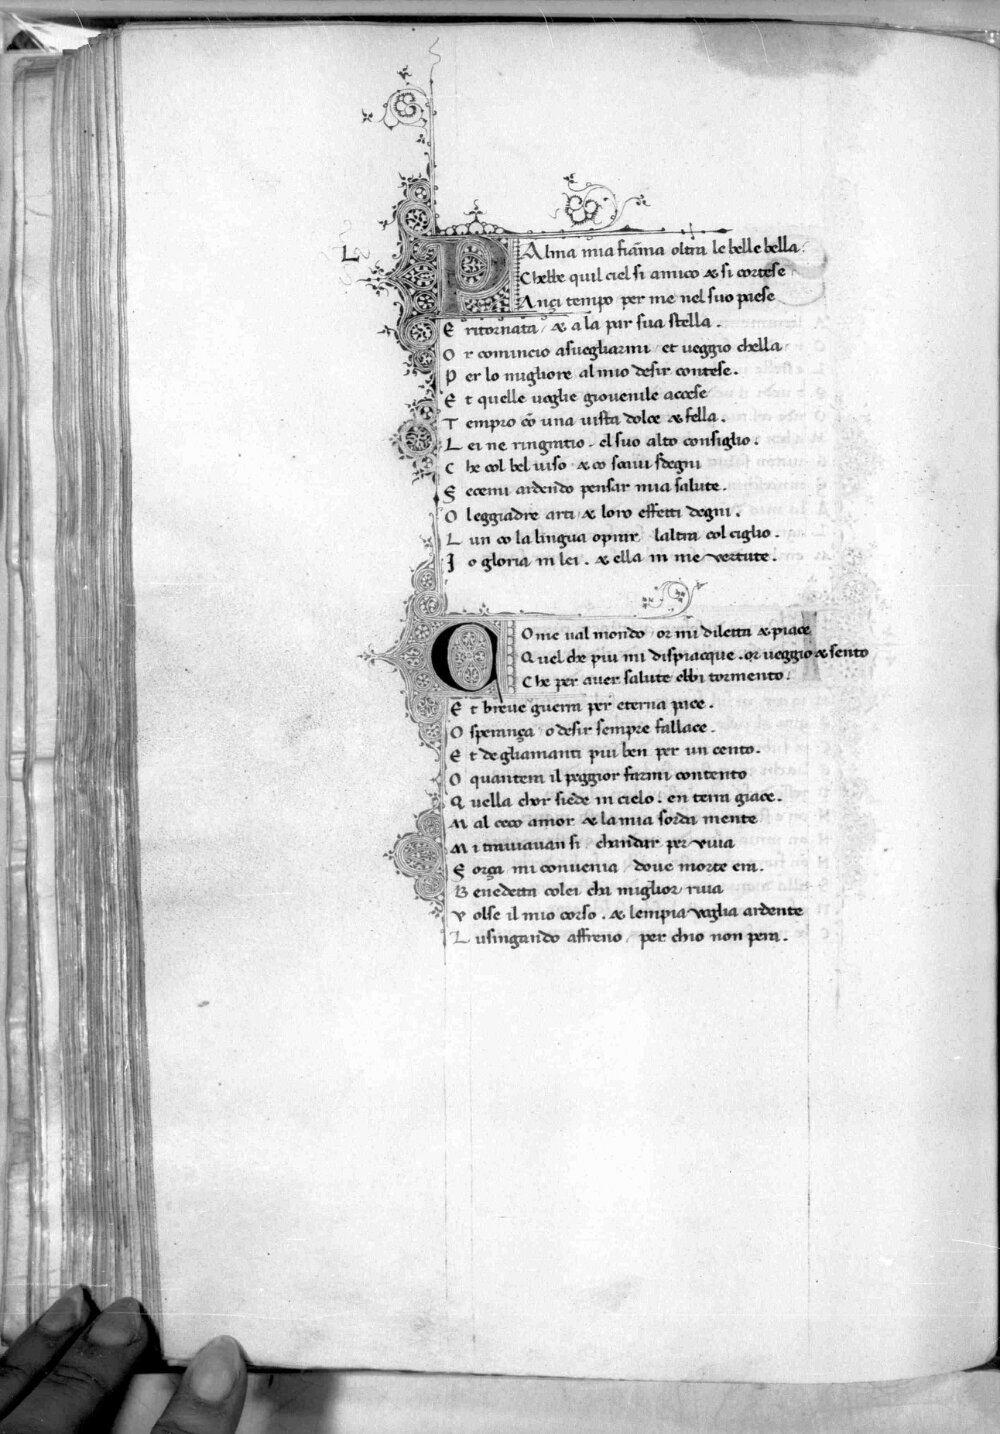 L
PAlma mia fiāma oltra le belle bella.
Chebbe quil ciel si amico & si cortese
Ançi tempo per me nel suo paese
E ritornata / & a la par sua stella.
Or comincio asuegliarmi et ueggio chella
Per lo migliore al mio desir contese.
Et quelle uoglie giouenile accese
Tempro cō una uista dolce & fella.
Lei ne ringratio. el suo alto consiglio.
Che col bel uiso & co soaui sdegni
Fecemi ardendo pensar mia salute.
O leggiadre arti & loro effetti degni.
Lun co la lingua oprar laltra col ciglio.
Io gloria in lei. & ella in me vertute.
COme ual mondo / or mi diletta & piace
Quel che piu mi dispiacque. or ueggio & sento
Che per auer salute ebbi tormento.
Et breue guerra per eterna pace.
O sperança / o desir sempre fallace.
Et degliamanti piu ben per un cento.
O quantera il peggior farmi contento
Quella chor siede in cielo. en terra giace.
Mal ceco amor & la mia sorda mente
Mi trauiauan si / chandar per viua
Força mi conuenia / doue morte era.
Benedetta colei cha miglior riua
Volse il mio corso. & lempia voglia ardente
Lusingando affreno / per chio non pera.